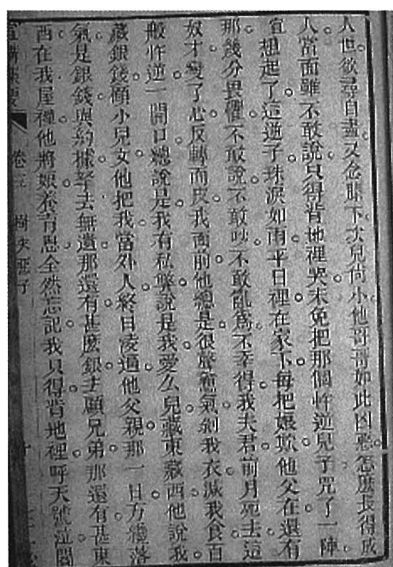 人世欲尋自盡又念膝下次兒尚小他哥哥如此凶惡怎麽長得成
人當面雖不敢說只得背地裡哭未免把那個忤逆兒子咒了一陣
宜想起了這逆子珠淚如雨平日裡在家下每把娘欺他父在還有
那幾分畏懼不敢說不敢吵不敢亂爲不幸得我夫君前月死去這
奴才變了心反轉面皮我面前他總是很聲穜氣剝我衣減我食百
般忤逆一開口總說是我有私弊說是我愛么兒藏東藏西他說我
藏銀錢顧小兒女他把我當外人終日凌逼他父親那一日方纔落
氣是銀錢與約據拏去無遺那還有甚麽銀去顧兄弟那還有甚東
西在我屋裡他將娘養育恩全然忘記我只得背地裡呼天號泣閻
卷三
子